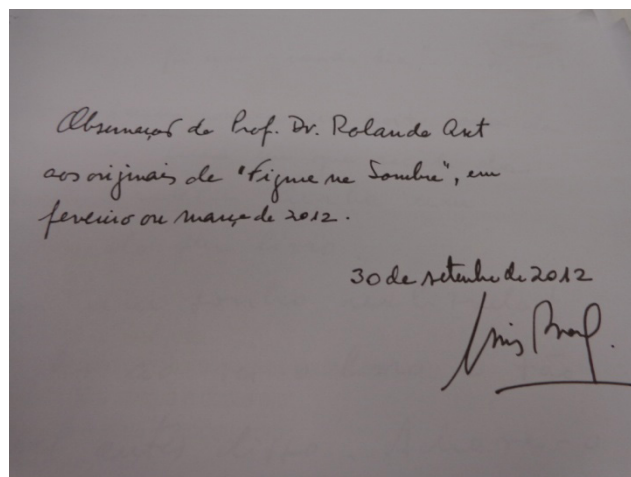 Observações do Prof. Dr. Rolando Axt
aos originais de "Figura na Sombra", em
fevereiro ou março de 2012.
30 de setembro de 2012